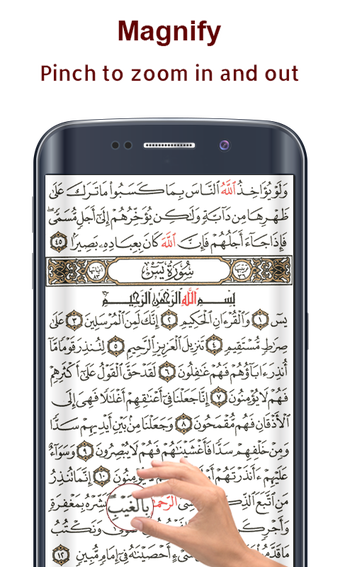 Magnify
Pinch to zoom in and out
وَلَوْ يُؤَاخِذُ ٱللَّهُ ٱلنَّاسَ بِمَا كَسَبُوا۟ مَا تَرَكَ عَلَىٰ
ظَهْرِهَا مِن دَآبَّةٍ وَلَٰكِن يُؤَخِّرُهُمْ إِلَىٰٓ أَجَلٍ مُّسَمًّى
فَإِذَا جَآءَ أَجَلُهُمْ فَإِنَّ ٱللَّهَ كَانَ بِعِبَادِهِۦ بَصِيرًۢا ٤٥
سُورَةُ يسٓ
بِسْمِ ٱللَّهِ ٱلرَّحْمَٰنِ ٱلرَّحِيمِ
يسٓ ١ وَٱلْقُرْءَانِ ٱلْحَكِيمِ ٢ إِنَّكَ لَمِنَ ٱلْمُرْسَلِينَ ٣ عَلَىٰ
صِرَٰطٍ مُّسْتَقِيمٍ ٤ تَنزِيلَ ٱلْعَزِيزِ ٱلرَّحِيمِ ٥ لِتُنذِرَ قَوْمًا مَّآ
أُنذِرَ ءَابَآؤُهُمْ فَهُمْ غَٰفِلُونَ ٦ لَقَدْ حَقَّ ٱلْقَوْلُ عَلَىٰٓ أَكْثَرِهِمْ
فَهُمْ لَا يُؤْمِنُونَ ٧ إِنَّا جَعَلْنَا فِىٓ أَعْنَٰقِهِمْ أَغْلَٰلًا فَهِىَ إِلَى
ٱلْأَذْقَانِ فَهُم مُّقْمَحُونَ ٨ وَجَعَلْنَا مِنۢ بَيْنِ أَيْدِيهِمْ سَدًّا
وَمِنْ خَلْفِهِمْ سَدًّا فَأَغْشَيْنَٰهُمْ فَهُمْ لَا يُبْصِرُونَ ٩ وَسَوَآءٌ
عَلَيْهِمْ ءَأَنذَرْتَهُمْ يُؤْمِنُونَ ١٠ إِنَّمَا تُنذِرُ
مَنِ ٱتَّبَعَ ٱلرَّحْمَٰنَ بِٱلْغَيْبِ بِمَغْفِرَةٍ
وَأَجْرٍ وَنَكْتُبُ
مَا قَدَّمُوا۟ أَحْصَيْنَٰهُ فِىٓ إِمَامٍ مُّبِينٍ ١٢